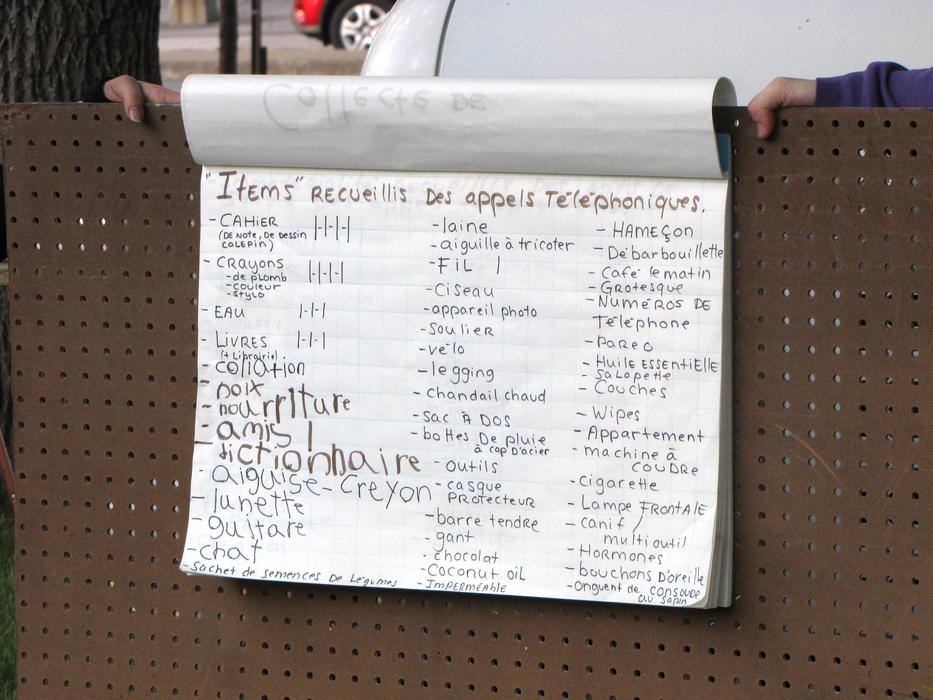 Collecte DE
"Items" RECUEILLIS Des appels Téléphoniques.
- CAHIER
(DE NOTE, DE DESSIN
CALEPIN)
- CRAYONS
- de plomb
- couleur
- stylo
- EAU
- LIVRES
(+ Librairie).
- collation
- noix
- nourriture
- amis |
- dictionnaire
- aiguise-creyon
- lunette
- guitare
- chat
- Sachet de semences de Légumes
- laine
- aiguille à tricoter
- FiL |
- Ciseau
- appareil photo
- soulier
- vélo
- legging
- chandail chaud
- SAC À DOS
- bottes De pluie
à cap D'acier
- outils
- casque
PROTECTEUR
- barre tendre
- gant
- chocolat
- Coconut oil
- IMPERMÉABLE
- HAMEÇON
- Débarbouillette
- Café le matin
- Grotesque
- NUMÉROS DE
Téléphone
- PAREO
- HUILE ESSENTIELLE
- Salopette
- Couches
- Wipes
- Appartement
- machine à
COUDRE
- cigarette
- LAMPE FRONTALE
- canif /
multioutil
- HORMONES
- bouchons D'oreille
- Onguent de consoude
au sapin